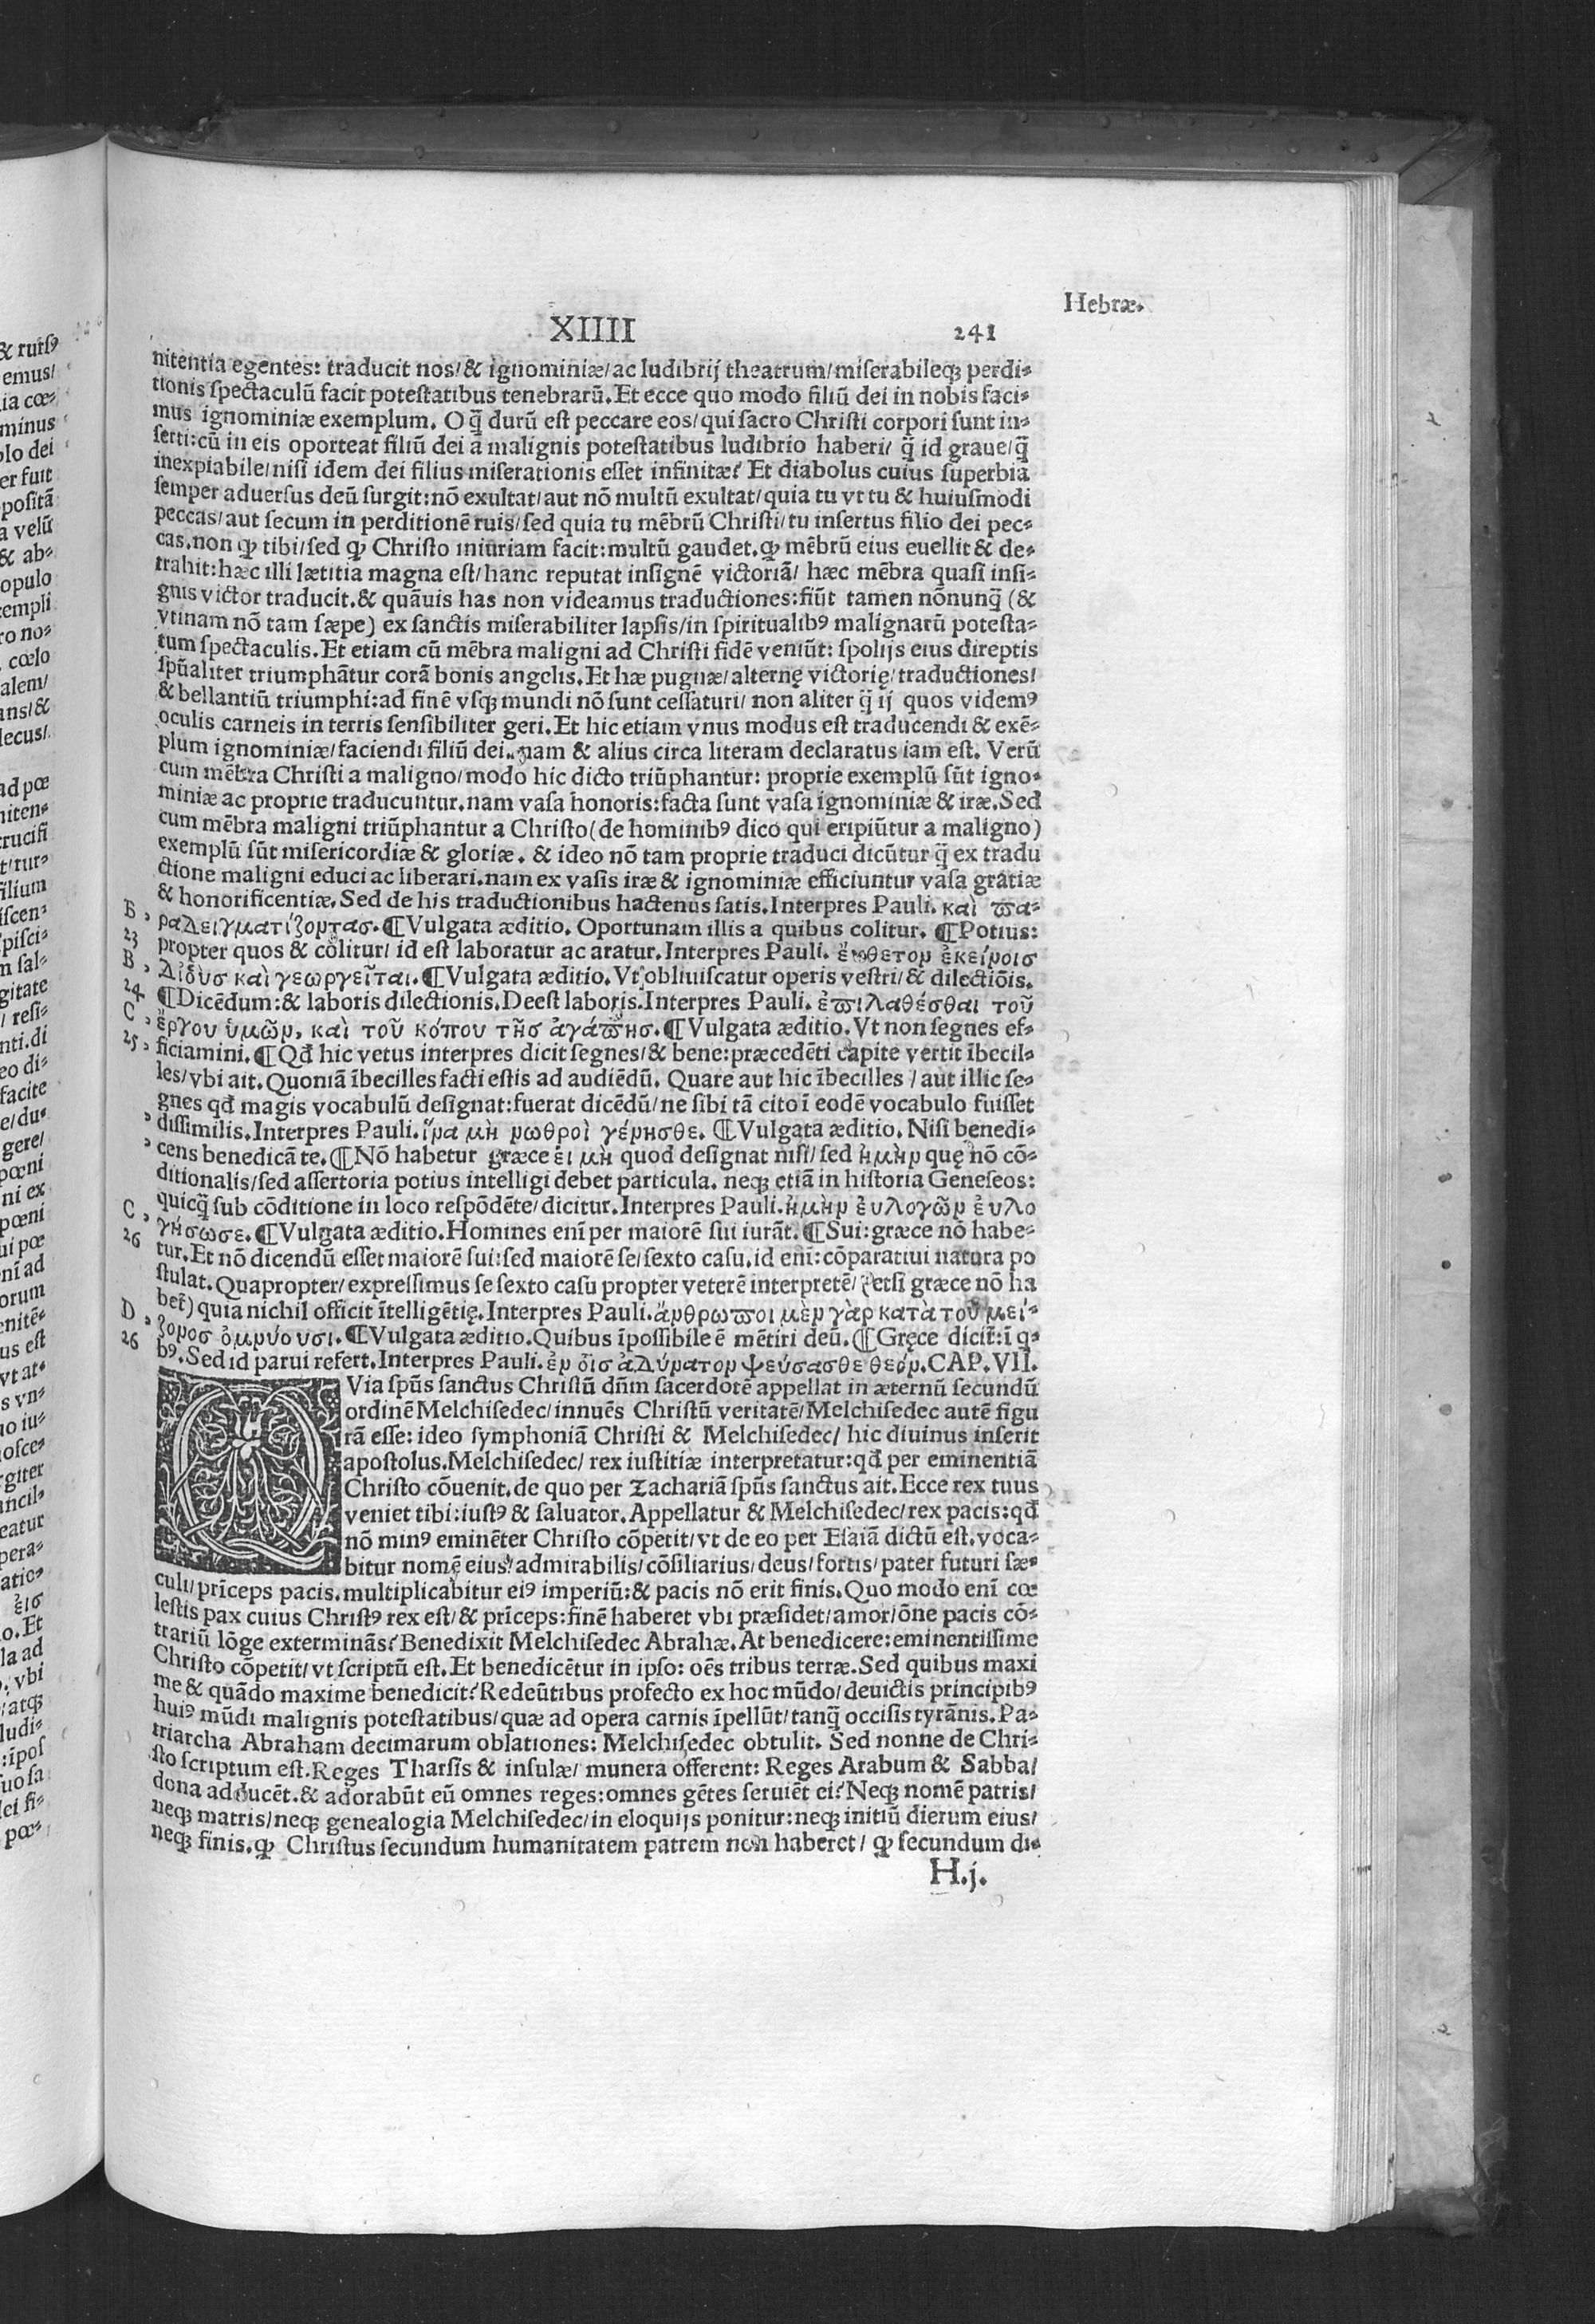 Hebræ.
XIIII 241
nitentia egentes: traducit nos/& ignominiæ/ac ludibrij theatrum/miserabileq; perdi-
tionis spectaculũ facit potestatibus tenebrarũ. Et ecce quo modo filiũ dei in nobis faci-
mus ignominiæ exemplum. O q̃ durũ est peccare eos/qui sacro Christi corpori sunt in-
serti: cũ in eis oporteat filiũ dei a malignis potestatibus ludibrio haberi/ q̃ id graue/q̃
inexpiabile/nisi idem dei filius miserationis esset infinitæ? Et diabolus cuius superbia
semper aduersus deũ surgit: nõ exultat/aut nõ multũ exultat/quia tu vt tu & huiusmodi
peccas/aut secum in perditionẽ ruis/sed quia tu mẽbrũ Christi/tu insertus filio dei pec-
cas. non ꝙ tibi/sed ꝙ Christo iniuriam facit: multũ gaudet. ꝙ mẽbrũ eius euellit & de-
trahit: hæc illi lætitia magna est/hanc reputat insignẽ victoriã/ hæc mẽbra quasi insi-
gnis victor traducit. & quãuis has non videamus traductiones: fiũt tamen nõnunq̃ (&
vtinam nõ tam sæpe) ex sanctis miserabiliter lapsis/in spiritualibꝰ malignarũ potesta-
tum spectaculis. Et etiam cũ mẽbra maligni ad Christi fidẽ veniũt: spolijs eius direptis
spũaliter triumphãtur corã bonis angelis. Et hæ pugnæ/alternę victorię/traductiones/
& bellantiũ triumphi: ad finẽ vsq; mundi nõ sunt cessaturi/ non aliter q̃ ij quos videmꝰ
oculis carneis in terris sensibiliter geri. Et hic etiam vnus modus est traducendi & exẽ-
plum ignominiæ/faciendi filiũ dei. nam & alius circa literam declaratus iam est. Verũ
cum mẽbra Christi a maligno/modo hic dicto triũphantur: proprie exemplũ sũt igno-
miniæ ac proprie traducuntur. nam vasa honoris: facta sunt vasa ignominiæ & iræ. Sed
cum mẽbra maligni triũphantur a Christo (de hominibꝰ dico qui eripiũtur a maligno)
exemplũ sũt misericordiæ & gloriæ. & ideo nõ tam proprie traduci dicũtur q̃ ex tradu
ctione maligni educi ac liberari. nam ex vasis iræ & ignominiæ efficiuntur vasa gratiæ
& honorificentiæ. Sed de his traductionibus hactenus satis. Interpres Pauli. καὶ ϖα-
B , ραδειγματίζοντασ. ¶ Vulgata æditio. Oportunam illis a quibus colitur. ¶ Potius:
23 propter quos & colitur/ id est laboratur ac aratur. Interpres Pauli. ἔυθετον ἐκείνοισ
B , Δἰ ὃυσ καὶ γεωργεῖται. ¶ Vulgata æditio. Vt obliuiscatur operis vestri/& dilectiõis.
24 ¶ Dicẽdum: & laboris dilectionis. Deest laboris. Interpres Pauli. ἐϖιλαθέσθαι τοῦ
C , ἔργου ὑμῶν, καὶ τοῦ κόπου τῆσ ἀγάϖησ. ¶ Vulgata æditio. Vt non segnes ef-
25 , ficiamini. ¶ Qđ hic vetus interpres dicit segnes/& bene: præcedẽti capite vertit ĩbecil-
les/vbi ait. Quoniã ĩbecilles facti estis ad audiẽdũ. Quare aut hic ĩbecilles / aut illic se-
gnes qđ magis vocabulũ designat: fuerat dicẽdũ/ne sibi tã cito ĩ eodẽ vocabulo fuisset
, dissimilis. Interpres Pauli. ἵνα μὴ νωθροὶ γένησθε. ¶ Vulgata æditio. Nisi benedi-
, cens benedicã te. ¶ Nõ habetur græce ἐι μὴ quod designat nisi/ sed ἠμὴν quę nõ cõ-
ditionalis/sed assertoria potius intelligi debet particula. neq; etiã in historia Geneseos:
quicq̃ sub cõditione in loco respõdẽte/dicitur. Interpres Pauli. ἠμὴν ἐυλογῶν ἐυλο
C , γήσωσε. ¶ Vulgata æditio. Homines enĩ per maiorẽ sui iurãt. ¶ Sui: græce nõ habe-
26 tur. Et nõ dicendũ esset maiorẽ sui: sed maiorẽ se/sexto casu. id enĩ: cõparatiui natura po
stulat. Quapropter/expressimus se sexto casu propter veterẽ interpretẽ/ (etsi græce nõ ha
bet̃) quia nichil officit ĩtelligẽtię. Interpres Pauli. ἄνθρωϖοι μὲν γὰρ κατὰ τοῦ μεί-
D , ζονοσ ὀμνύουσι. ¶ Vulgata æditio. Quibus ĩpossibile ẽ mẽtiri deũ. ¶ Gręce dicit̃: ĩ q-
26 bꝰ. Sed id parui refert. Interpres Pauli. ἐν ὁῖσ ἀδύνατον ψεύσασθε θεόν. CAP. VII.
QVia spũs sanctus Christũ dñm sacerdotẽ appellat in æternũ secundũ
ordinẽ Melchisedec/innuẽs Christũ veritatẽ/Melchisedec autẽ figu
rã esse: ideo symphoniã Christi & Melchisedec/ hic diuinus inserit
apostolus. Melchisedec/ rex iustitiæ interpretatur: qđ per eminentiã
Christo cõuenit. de quo per Zachariã spũs sanctus ait. Ecce rex tuus
veniet tibi: iustꝰ & saluator. Appellatur & Melchisedec/rex pacis: qđ
nõ minꝰ eminẽter Christo cõpetit/vt de eo per Esaiã dictũ est. voca-
bitur nomẽ eius/admirabilis/cõsiliarius/deus/fortis/pater futuri sæ-
culi/prĩceps pacis. multiplicabitur eiꝰ imperiũ: & pacis nõ erit finis. Quo modo enĩ cœ
lestis pax cuius Christꝰ rex est/& prĩceps: finẽ haberet vbi præsidet/amor/õne pacis cõ-
trariũ lõge exterminãs? Benedixit Melchisedec Abrahæ. At benedicere: eminentissime
Christo cõpetit/vt scriptũ est. Et benedicẽtur in ipso: oẽs tribus terræ. Sed quibus maxi
me & quãdo maxime benedicit? Redeũtibus profecto ex hoc mũdo/deuictis principibꝰ
huiꝰ mũdi malignis potestatibus/quæ ad opera carnis ĩpellũt/tanq̃ occisis tyrãnis. Pa-
triarcha Abraham decimarum oblationes: Melchisedec obtulit. Sed nonne de Chri-
sto scriptum est. Reges Tharsis & insulæ/ munera offerent: Reges Arabum & Sabba/
dona adducẽt. & adorabũt eũ omnes reges: omnes gẽtes seruiẽt ei? Neq; nomẽ patris/
neq; matris/neq; genealogia Melchisedec/in eloquijs ponitur: neq; initiũ dierum eius/
neq; finis. ꝙ Christus secundum humanitatem patrem non haberet/ ꝙ secundum di-
H.j.